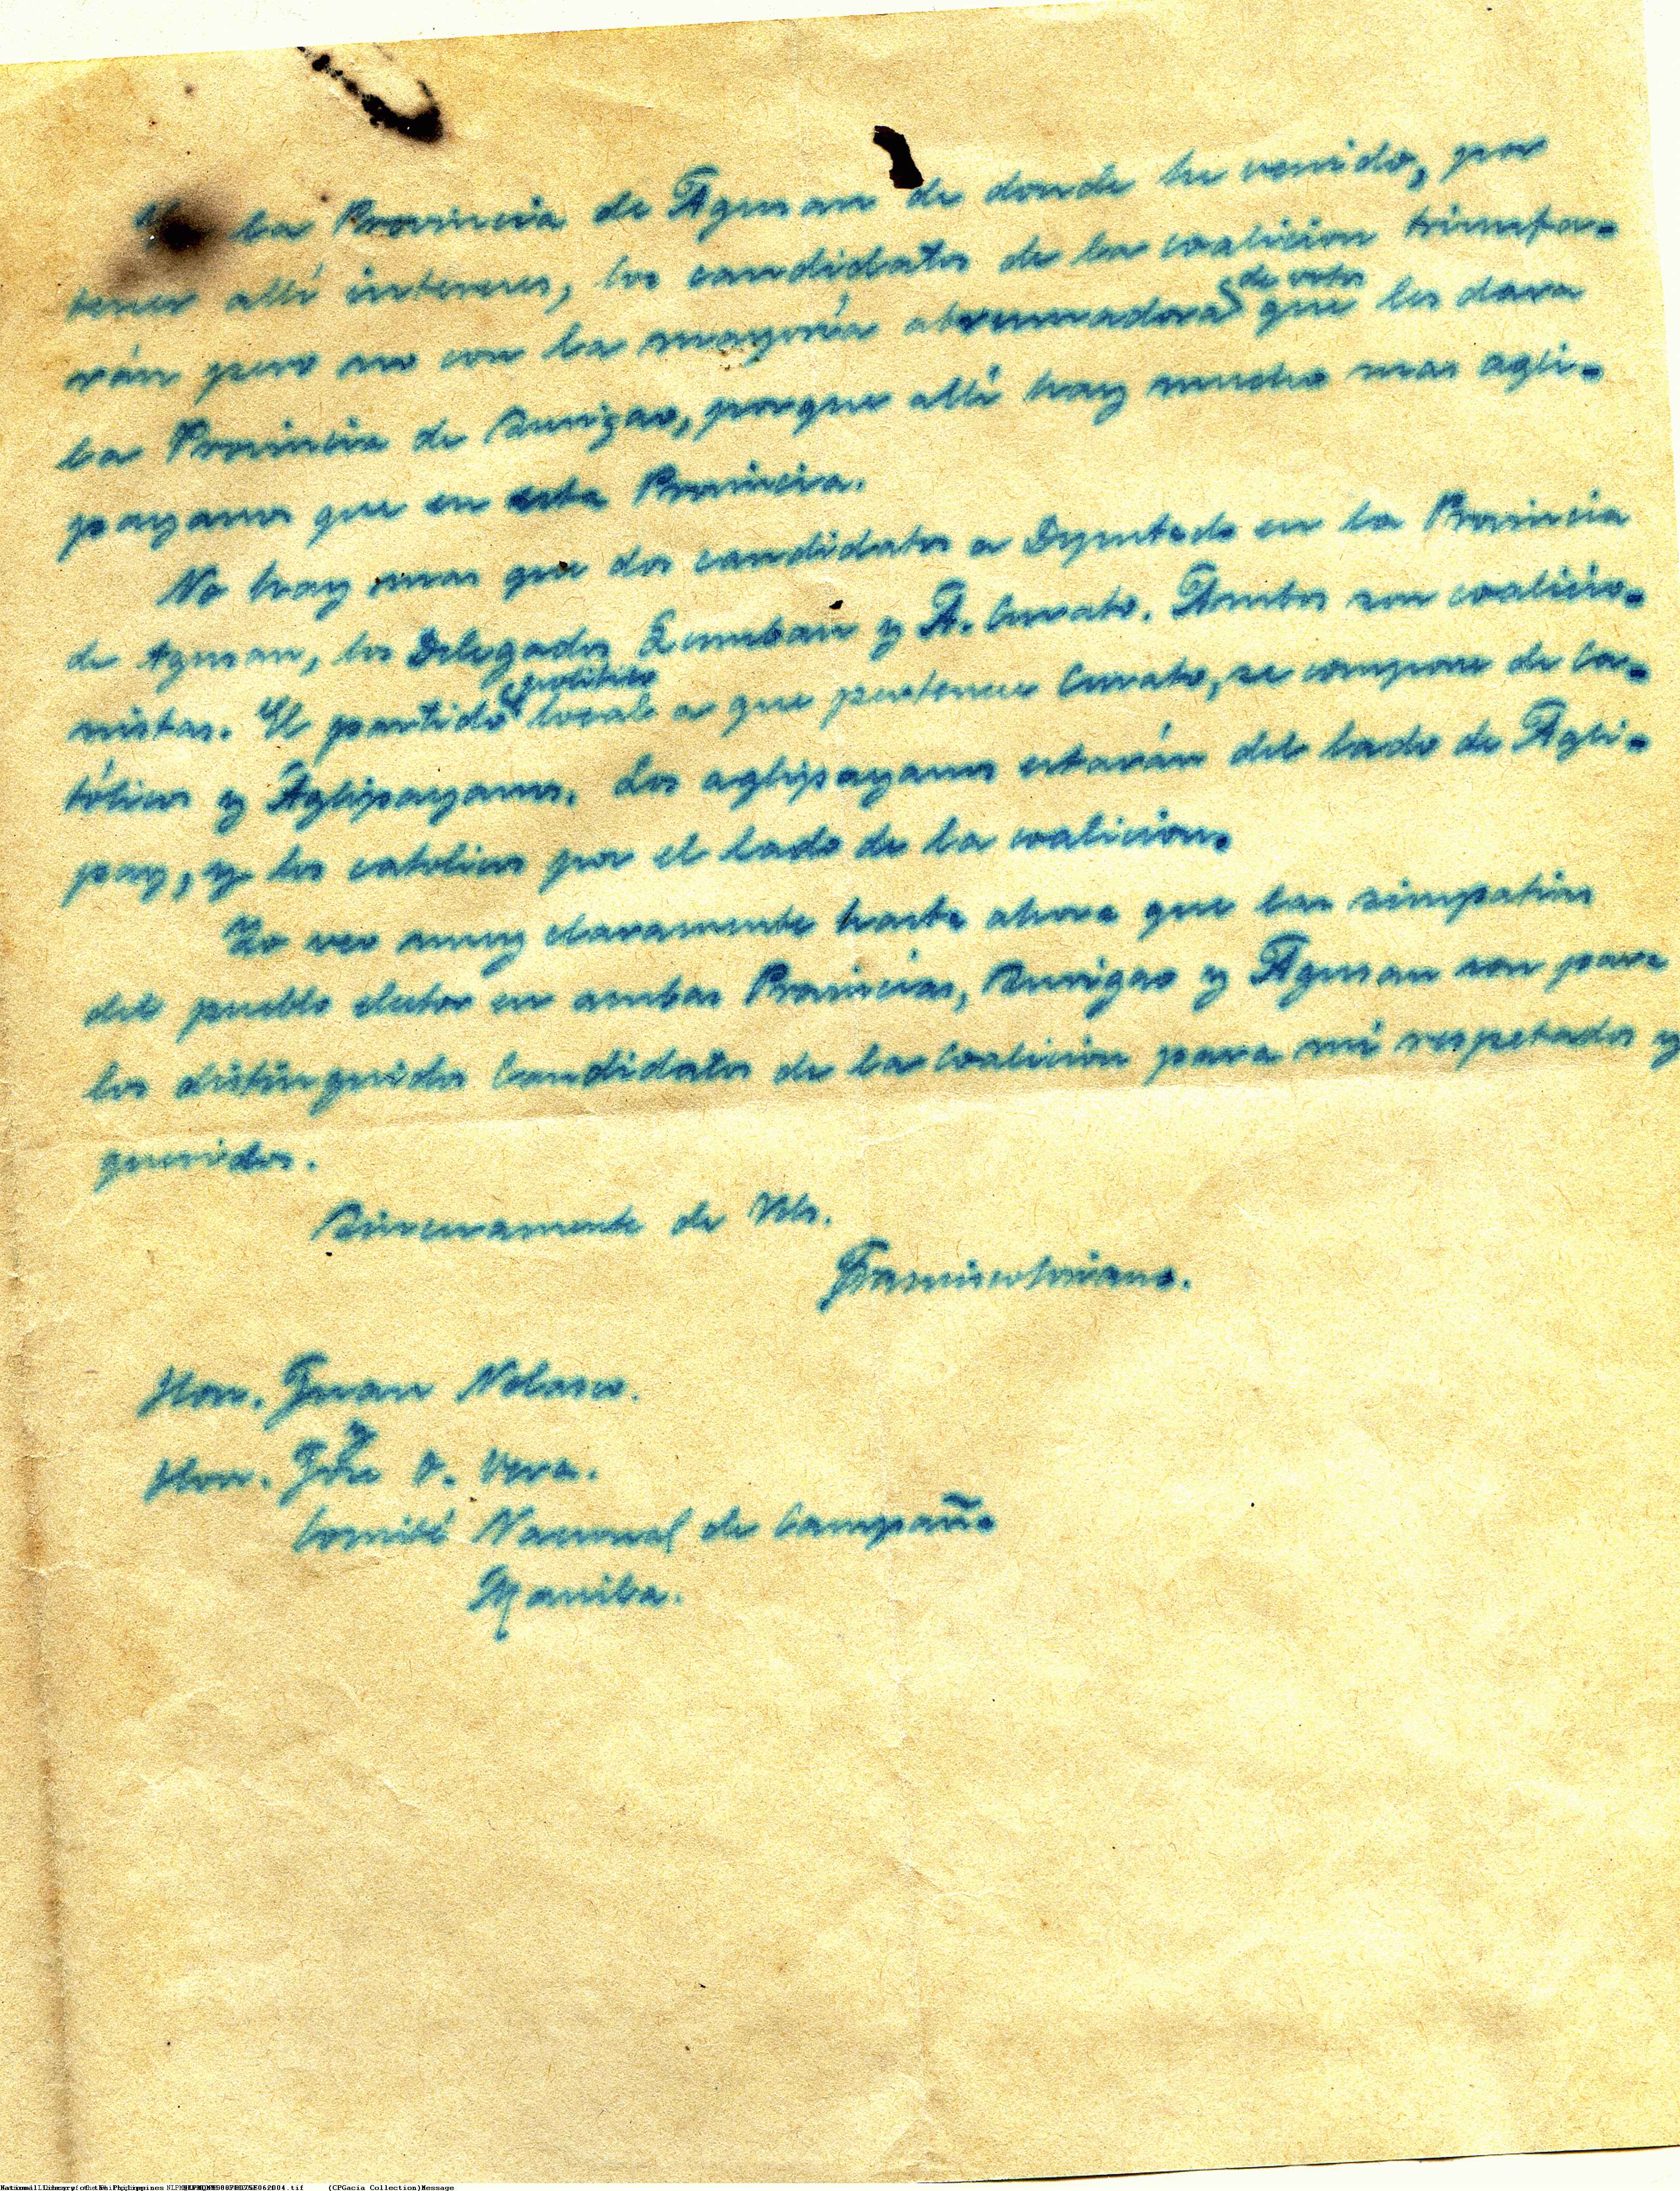 la Provincia de Agusan de donde he venido, por
tener allí intereses, los candidatos de la coalicion triunfa-
rán pero no con la mayoría abrumadora de votos que les dara
la Provincia de Surigao, porque allí hay mucho mas agli-
payanos que en esta Provincia.
No hay mas que dos candidatos a Diputado en la Provincia
de Agusan, los Delegados Zumban y A. Curato. Ambos son coalicio-
nistas. El partido político local a que pertenece Curato, se compone de Ca-
tólicos y Aglipayanos. Los aglipayanos estarán del lado de Agli-
pay, y los catolicos por el lado de la coalicion.
Yo veo muy claramente hasta ahora que las simpatias
del pueblo elector en ambas Provincias, Surigao y Agusan son para
los distinguidos Candidatos de la Coalicion para mí respetados y
queridos.
Sinceramente de Vds.
Francisco Soriano.
Hon. Juan Nolasco.
y
Hon. José O. Vera.
Comité Nacional de Campaña
Manila.
(CPGacia Collection)Message